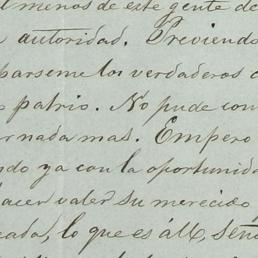 menos de este gente de
autoridad. Previendo
parseme los verdaderos
patrio. No pude con
nada mas. Empero
ndo ya con la oportunida
hacer valer su merecido
eada, lo que es all, seño